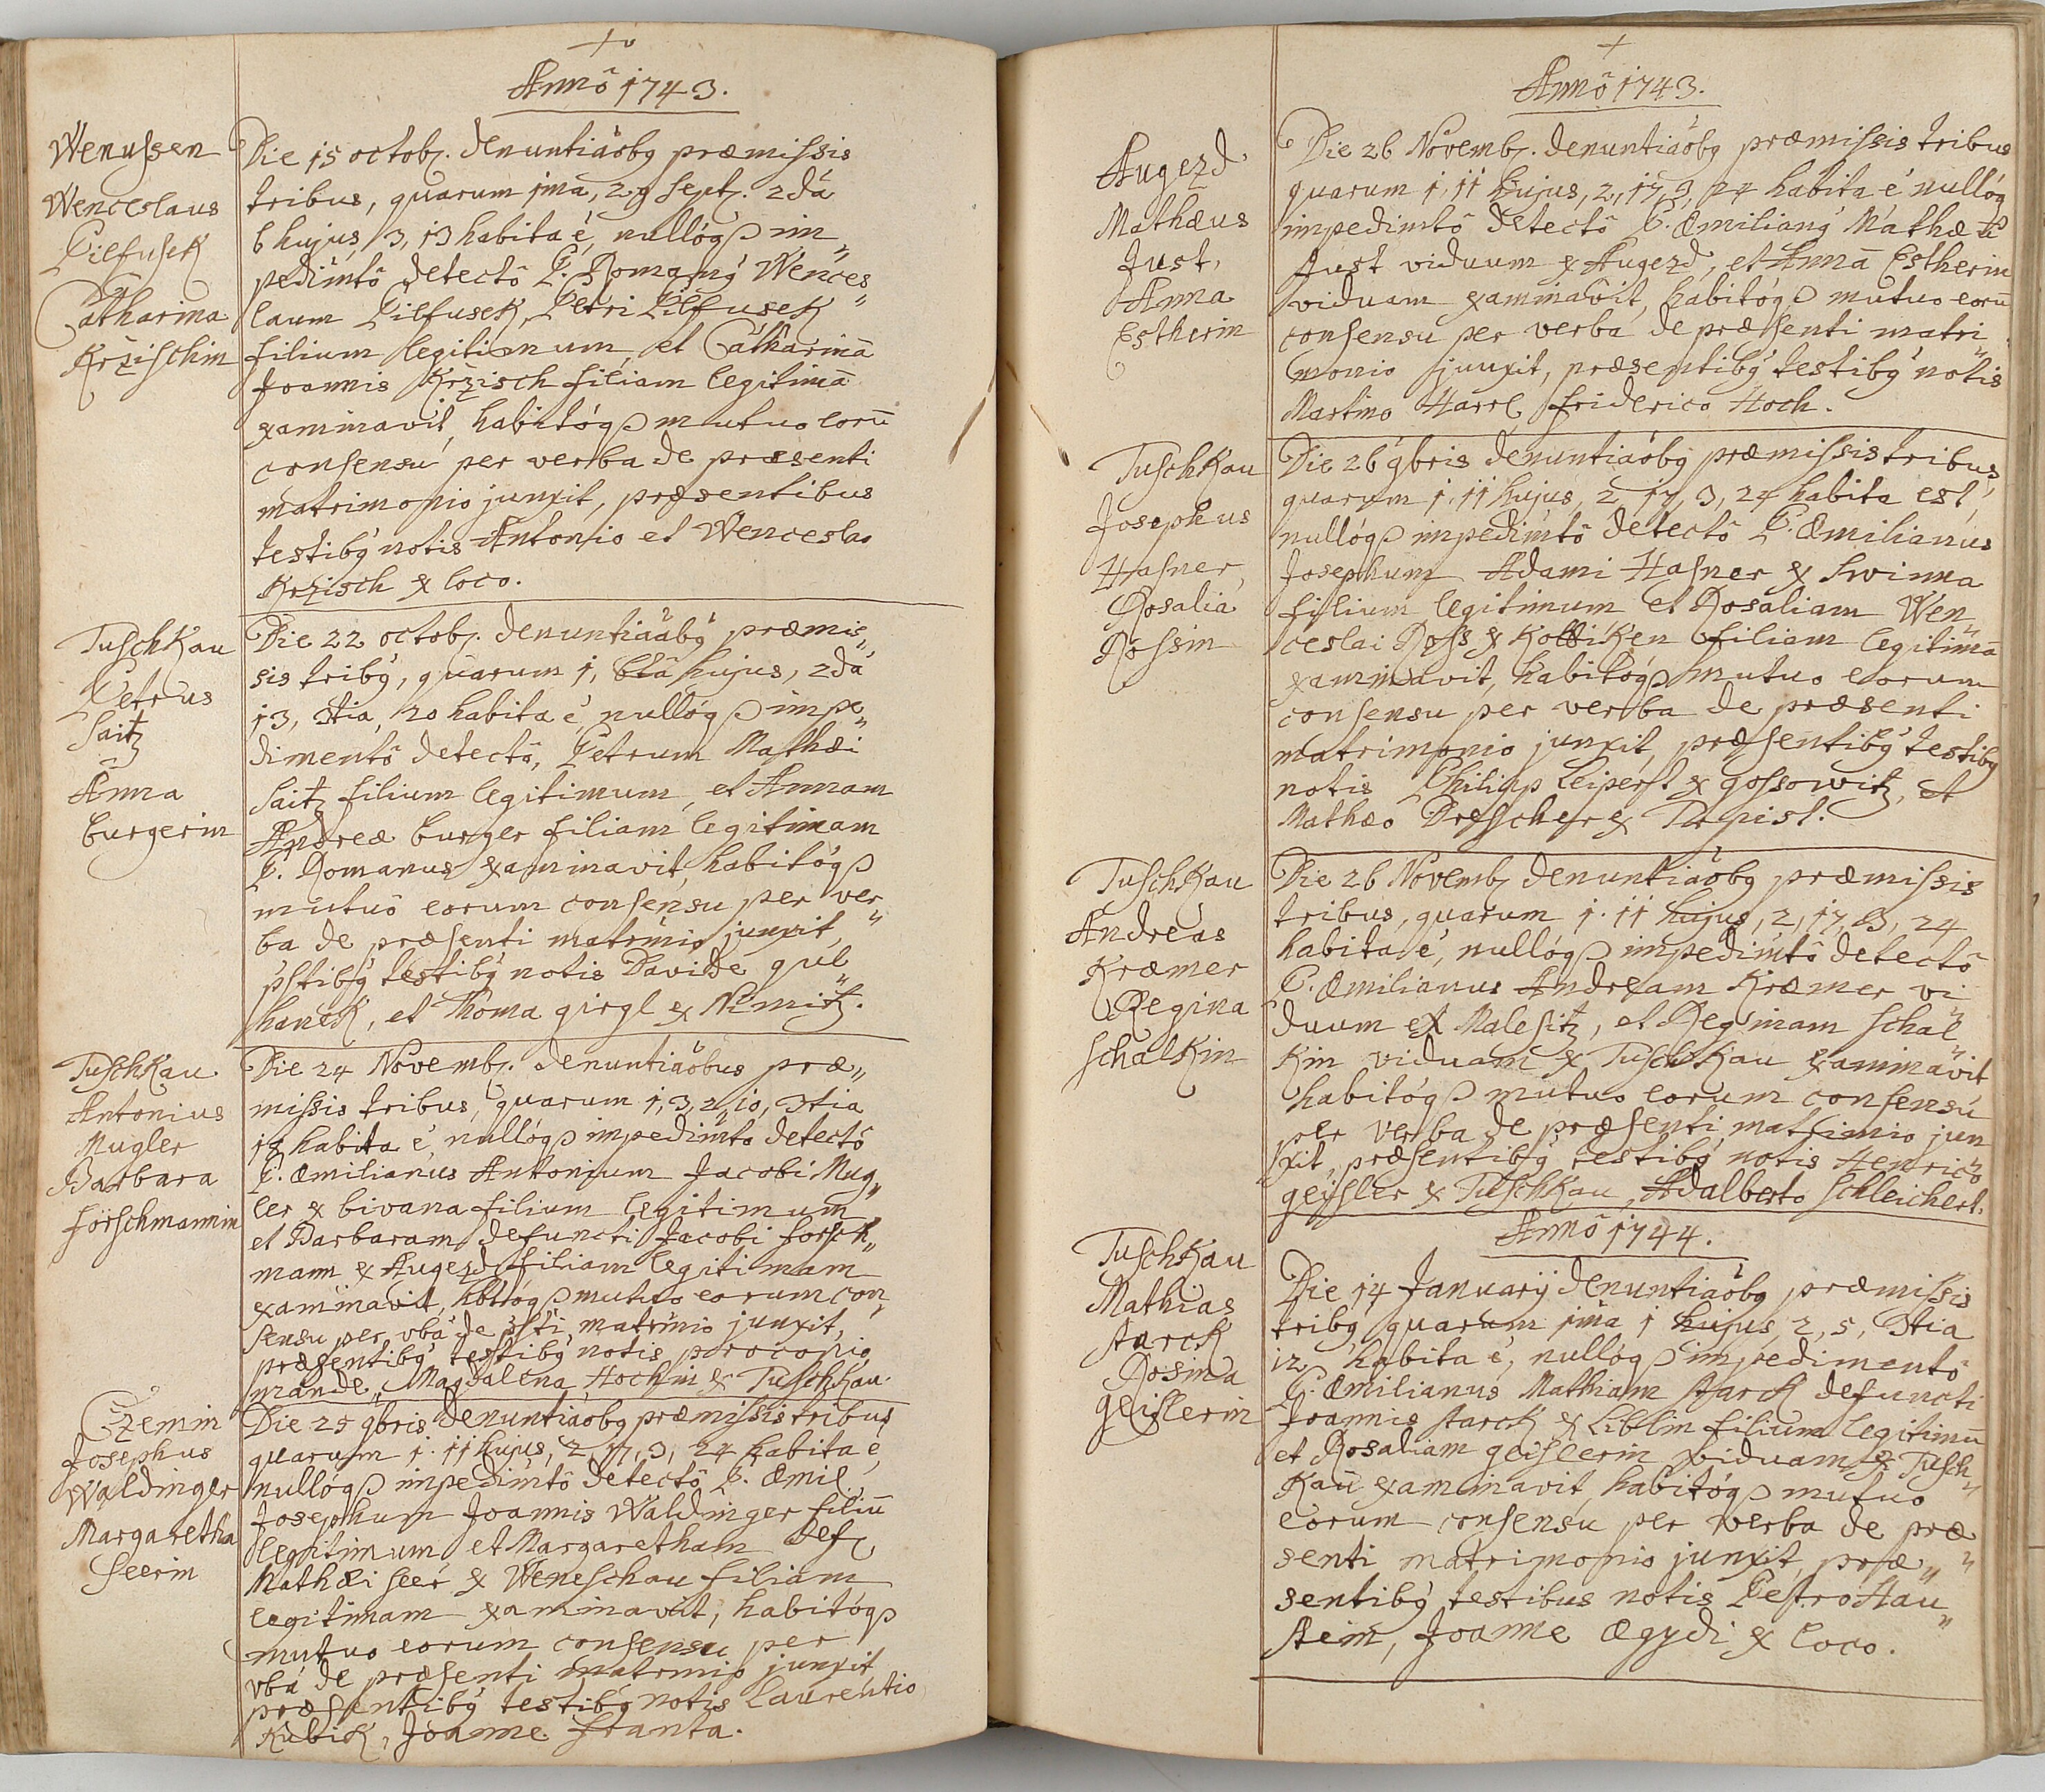 Annô 1743.
Wenussen
Wenceslaus
Pilfusek
Catharina
Krzischin
Die 15 octob. denuntiaõbq præmissis
tribus, quarum 1ma, 29 sept. 2da
6 hujus, 3, 13 habita é, nullóq im„
pedimtô detectô P. Romanq Wences„
laum Pilfusek, Petri Pilfusek
filium legitimum, et Catharinā
Joannis Krzisch filiam legitimā
examinavit, habitóq mutuo eorū
consensu per verba de præsenti
matrimonio junxit, præsentibus
testibq notis Antonio et Wenceslao
Krzisch ex loco.
Tuschkau
Petrus
Saitz
Anna
Burgerin
Die 22 octob. denuntiaãbq præmis„
sis tribq, quarum 1, 6ta hujus, 2da
13, 3tia, 20 habita é, nullóq impe„
dimentô detectô, Petrum Mathæi
Saitz filium legitimum, et Annam
Andreæ Burger filiam legitimam
P. Romanus examinavit, habitóq
mutuô eorum consensu per ver„
ba de præsenti matrimio junxit,
pstibq testibq notis Davide gul„
haneck, et Thoma girgl ex Nimitz.
Tuschkau
Antonius
Mugler
Barbara
Förschmannin
Die 24 Novemb. denuntiaõbus præ„
missis tribus, quarum 1, 3, 2, 10, 3tia
17 habita é, nullóq impedimto detectô
P. Æmilianus Antonium Jacobi Mug„
ler ex bivana filium legitimum
et Barbaram defuncti Jacobi försch„
mann ex Augezd filiam legitimam
examinavit, hbitóq mutuo eorum con„
sensu per vba de psti matrimio junxit,
præsentibq testibq notis
Magdalena Hochin ex Tuschkau.
Czemin
Josephus
Waldinger
Margaretha
Seerin
Die 25 9bris denuntiaõbq præmissis tribus
quarum 1. 11 hujus, 2, 17, 3, 24 habita é,
nullóq impedimtô detectô P. Æmil.
Josephum Joannis Waldinger filiū
legitimum et Margaretham def.
Mathæi Seer ex Weneschau filiam
legitimam examinavit, habitóq
mutuo eorum consensu per
vba de præsenti matrimio junxit
præsentibq testibq notis Laurentio
Kubik, Joanne Franta.
Annô 1743.
Augezd
Mathæus
Just,
Anna
Estherin
Die 26 Novemb. denuntiaõbq præmissis tribus
quarum 1, 11 hujus, 2, 17, 3, 24 habita é, nullóq
impedimtô detectô P. Æmilianq Mathæū
Just viduum ex Augezd, et Annā Estherin
viduam examinavit, habitóq mutuo eorū
consensu per verba de præsenti matri„
monio junxit, præsentibq testibq notis
Martino Harrl, friderico Hoch.
Tuschkau
Josephus
Hasner,
Rosalia
Rossin
Die 26 9bris denuntiaõbq præmissis tribus,
quarum 1. 11 hujus, 2, 17, 3, 24 habita est,
nullóq impedimtô detectô P. Æmilianus
Josephum Adami Hasner ex Swinna
filium legitimum et Rosaliam Wen„
ceslai Ross ex Kottiken filiam legitimā
examinavit, habitóq mutuo eorum
consensu per verba de præsenti
matrimonio junxit, præsentibq testibq
notis Philipp Leiperst ex gossowitz, et
Mathæo Drescher ex
Tuschkau
Andreas
Kræmer
Regina
Schalkin
Die 26 Novemb. denuntiaõbq præmissis
tribus, quarum 1. 11 hujus, 2, 17, 3, 24
habita é, nullóq impedimtô detectô
P. Æmilianus Andream Kræmer vi„
duum ex Malesitz, et Reginam Schal„
kin viduam ex Tuschkau examinavit
habitóq mutuo eorum consensu
per verba de præsenti matrimio jun„
xit, præsentibq testibq notis Henrico
geisler ex Tuschkau, Adalberto Schleichert.
Annô 1744.
Tuschkau
Mathias
Starck
Rosina
geislerin
Die 14 Januarij denuntiaõbq præmissis
tribq quarum 1ma 1 hujus, 2, 5, 3tia
12 habita é, nullóq impedimentô
P. Æmilianus Mathiam Starck defuncti
Joannis Starck ex Liblin filium legitimū
et Rosaliam geislerin viduam ex Tusch„
kau examinavit, habitóq mutuo
eorum consensu per verba de præ„
senti matrimonio junxit, præ„
sentibq testibus notis Petro Hau„
stein, Joanne Ægydi ex loco.